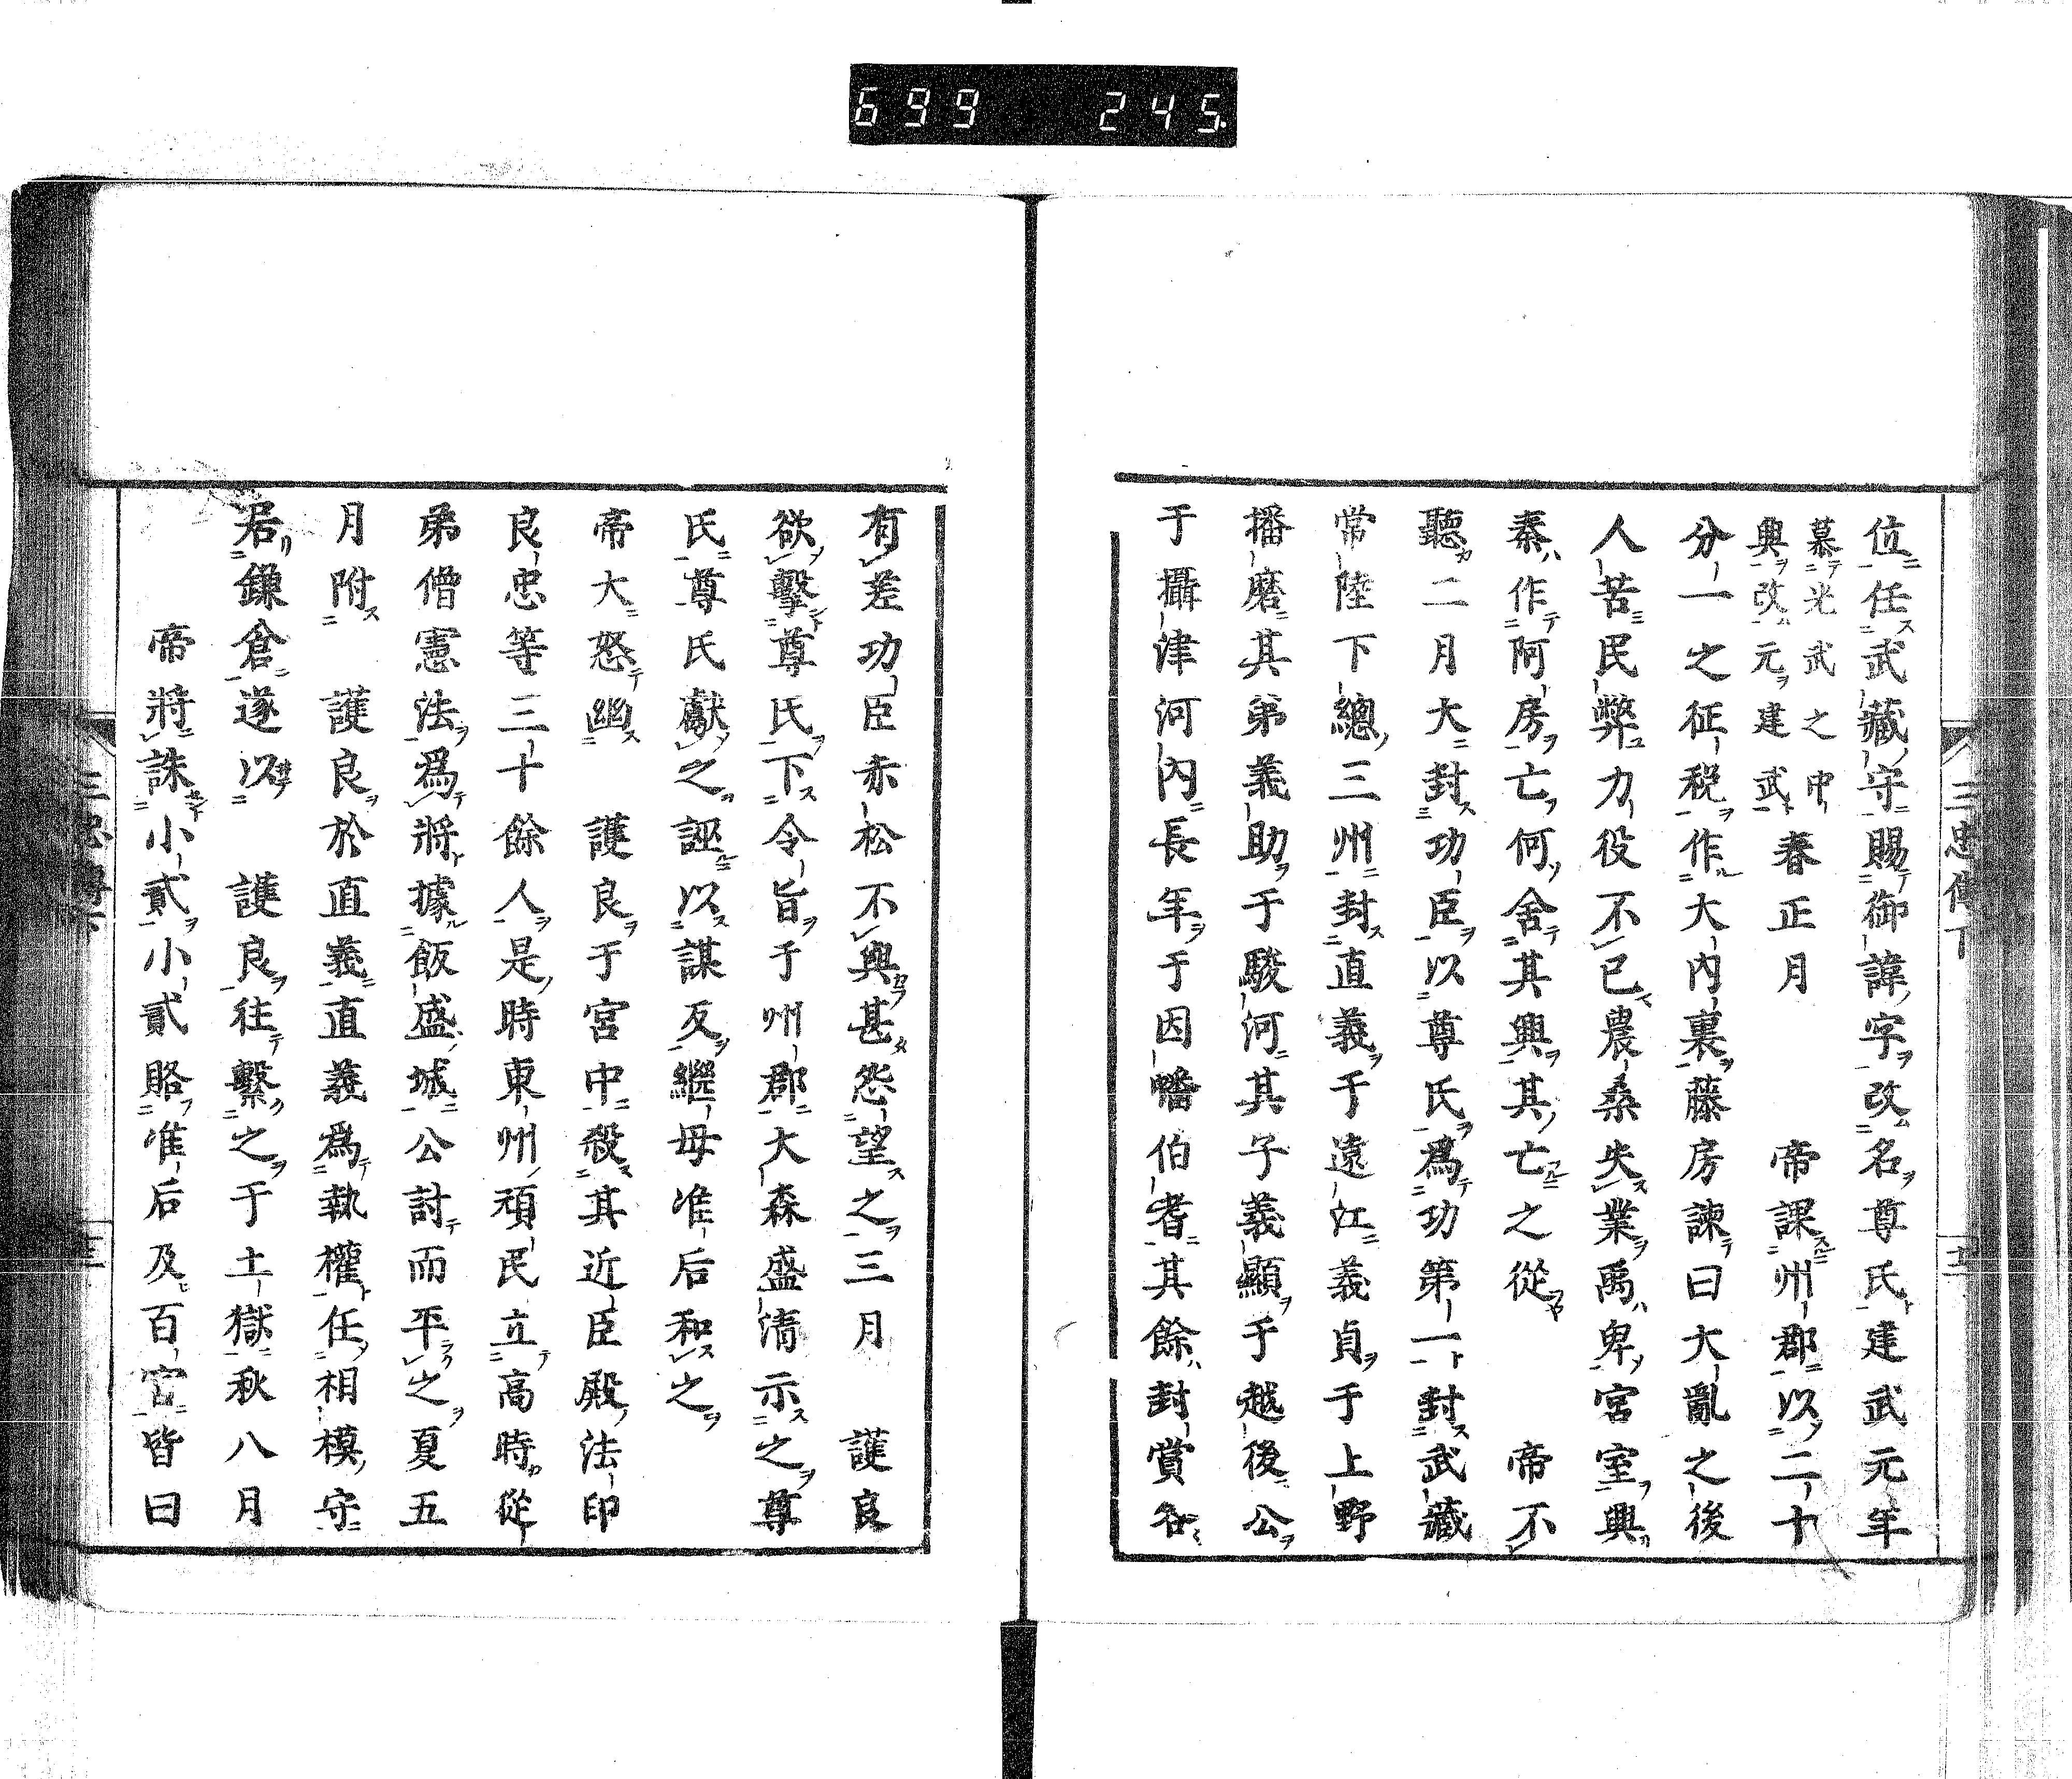 699 245
位任武藏守賜御諱字改名尊氏建武元年
慕光武之中
興改元建武
春正月 帝課州郡以二十
分一之征税作大内裏藤房諫曰大亂之後
人苦民弊力役不已農桑失業禹卑宮室興
秦作阿房亡何舍其興其亡之從 帝不
聽二月大封功臣以尊氏爲功第一封武藏
常陸下總三州封直義于遠江義貞于上野
播磨其弟義助于駿河其子義顯于越後公
于攝津河内長年于因幡伯耆其餘封賞各
三忠傳下
有差功臣赤松不與甚怨望之三月 護良
欲擊尊氏下令旨于州郡大森盛清示之尊
氏尊氏獻之誣以謀反繼母准后和之
帝大怒幽 護良于宮中殺其近臣殿法印
良忠等三十餘人是時東州頑民立高時從
弟僧憲法爲將據飯盛城公討而平之夏五
月附 護良於直義直義爲執權任相模守
居鎌倉遂以 護良往繫之于土獄秋八月
帝將誅小貳小貳賂准后及百官皆曰